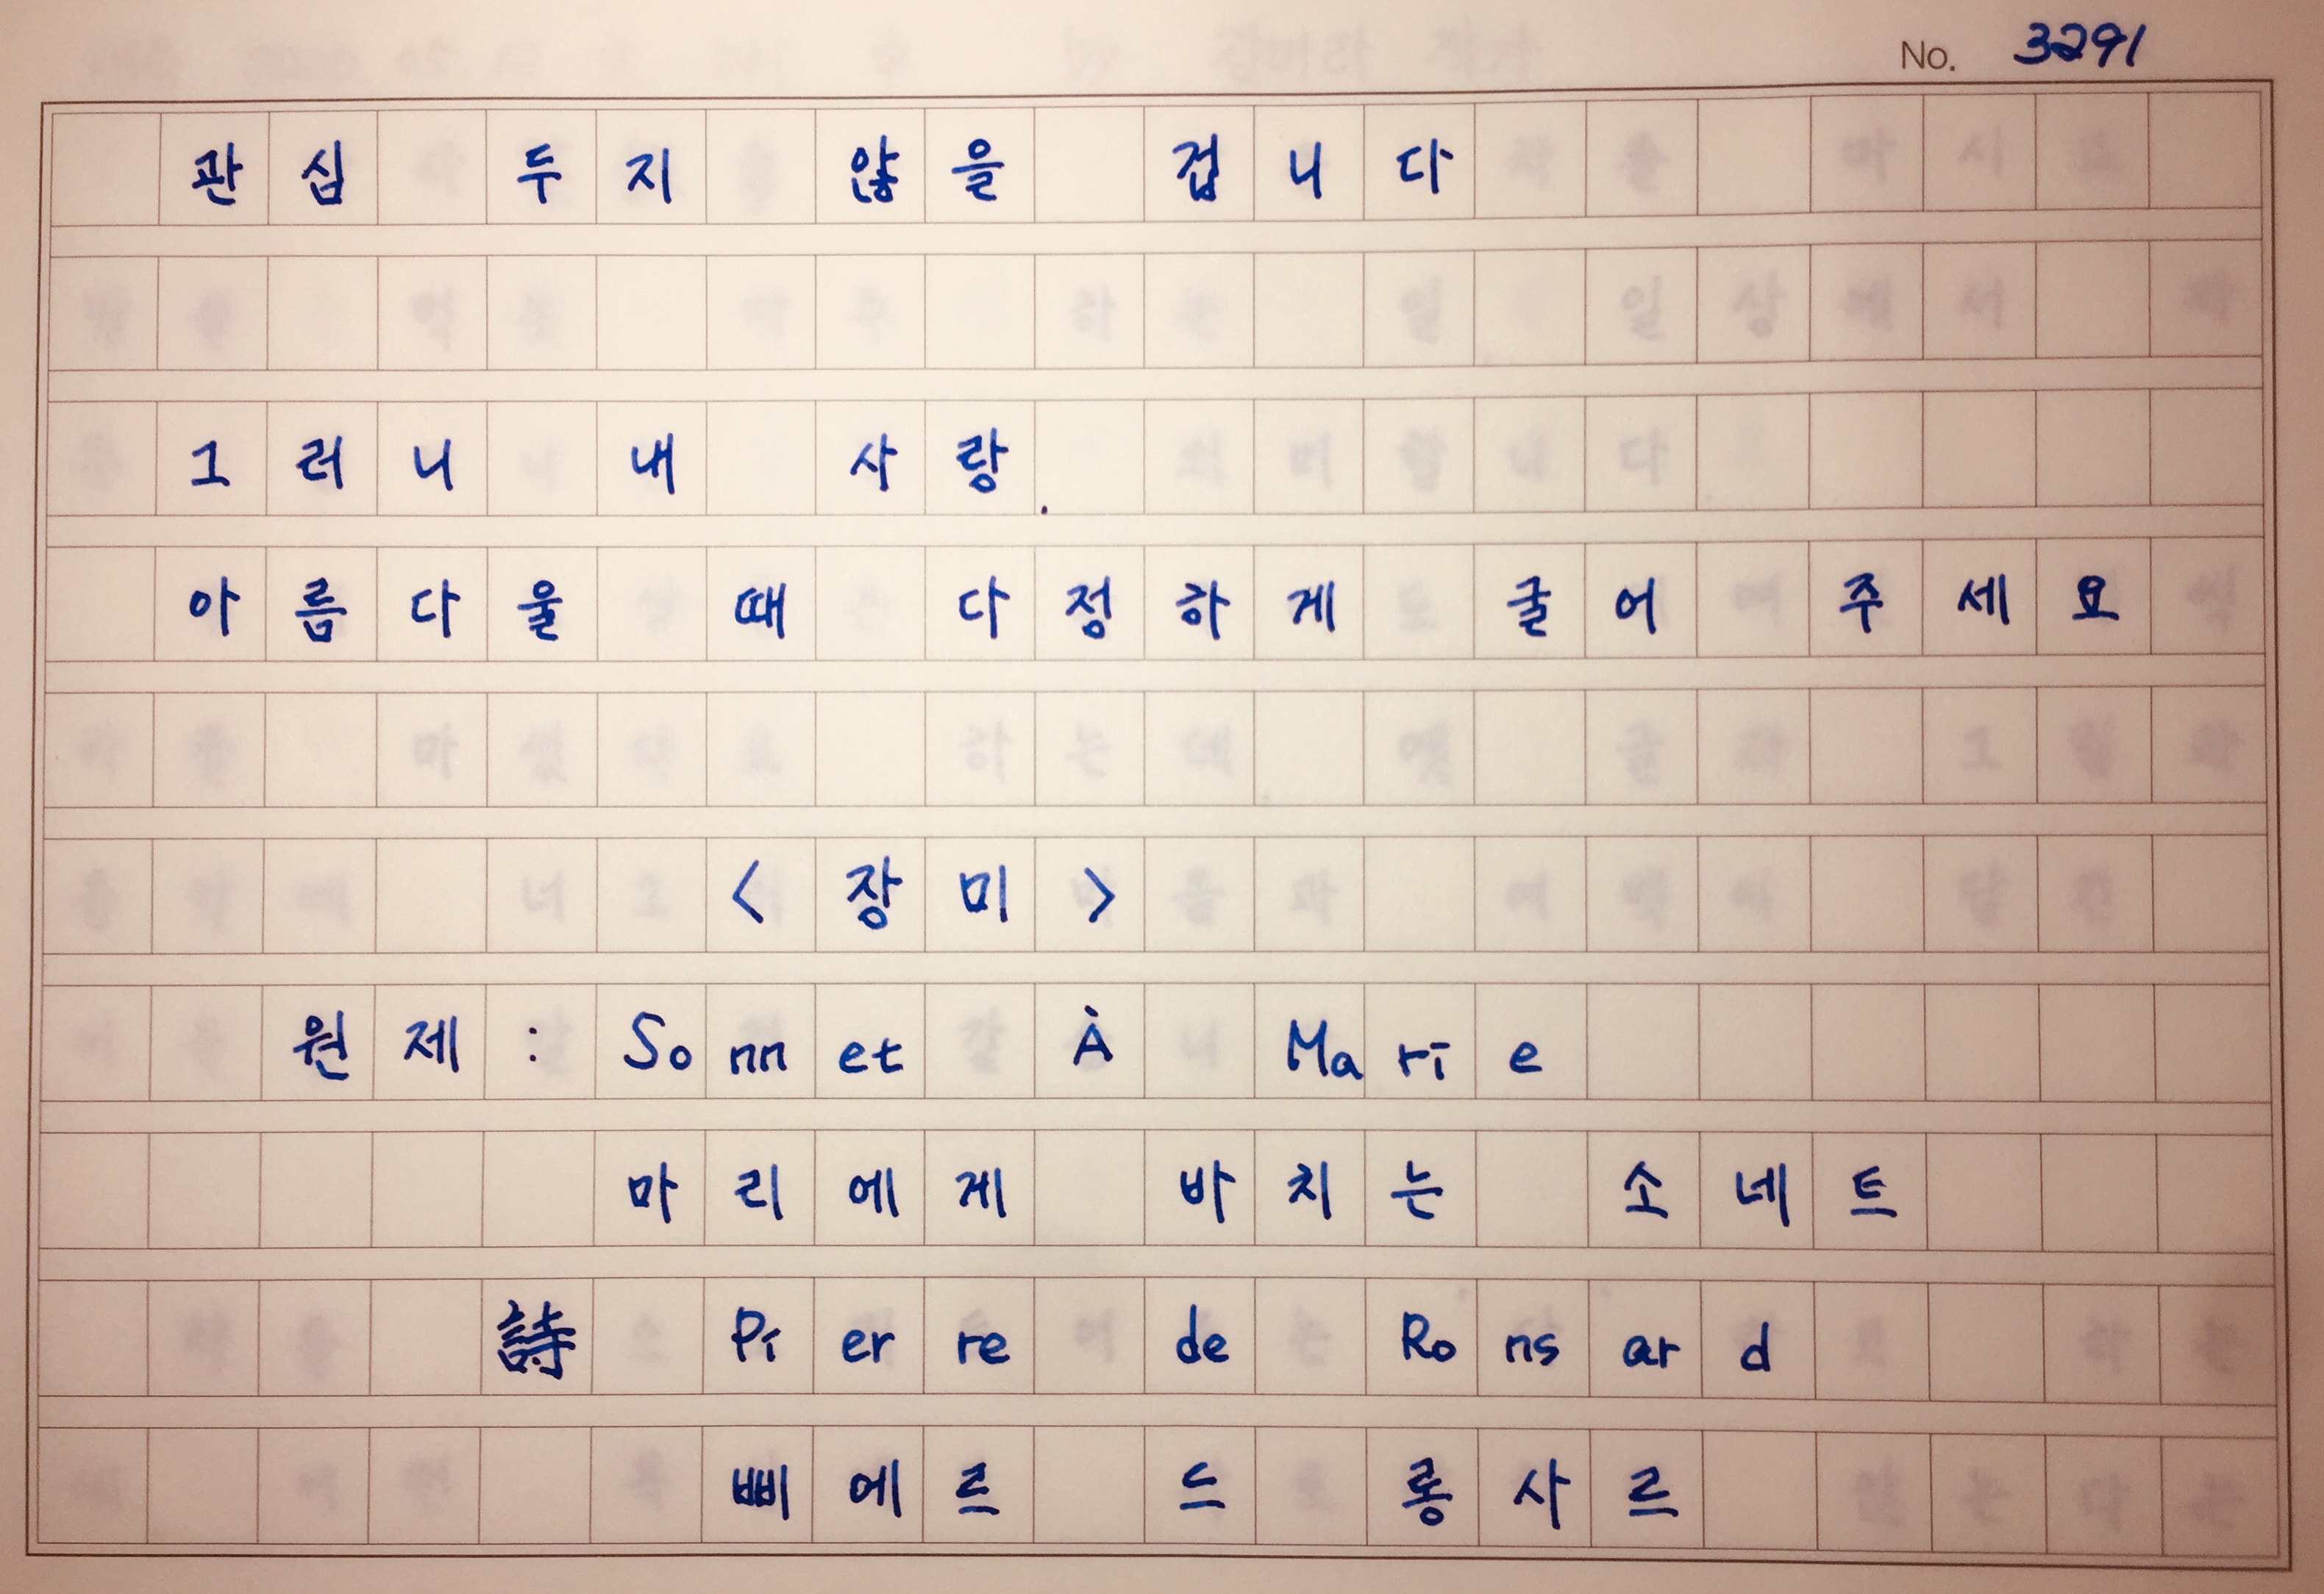 No. 3291
관심 두지 않을 겁니다
그러니 내 사랑.
아름다울 때 다정하게 굴어 주세요
<장미>
원제: Sonnet À Marie
마리에게 바치는 소네트
詩 Pierre de Ronsard
삐에르 드 롱사르